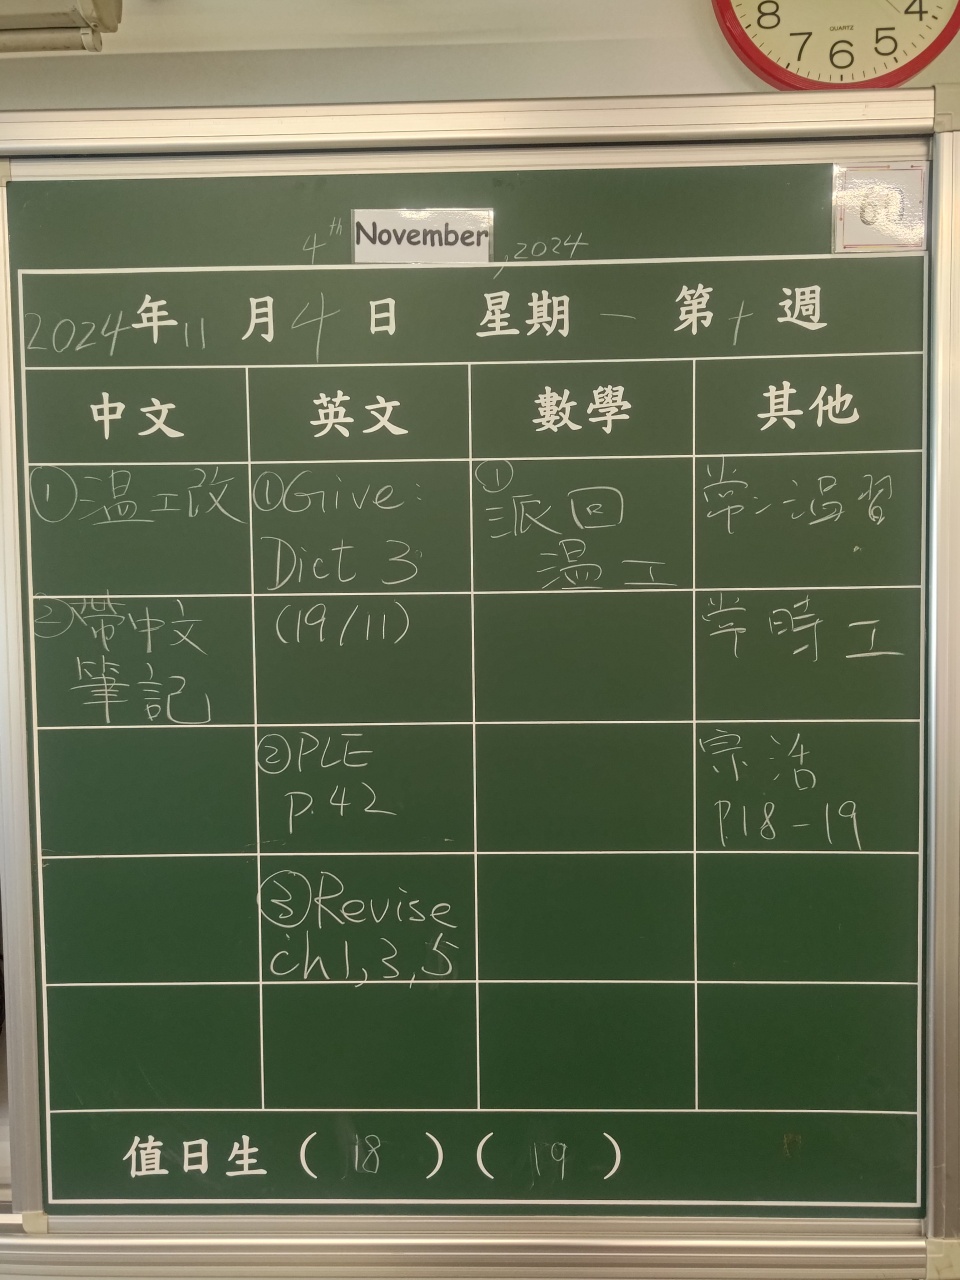 8 7 6 5 4
QUARTZ
4th November, 2024
2024年11月4日 星期一 第十週
中文 英文 數學 其他
①温工改
②帶中文
筆記
①Give:
Dict 3
(19/11)
②PLE
p.42
③Revise
ch1,3,5
①
派回
溫工
常:温習
常時工
宗浩
P.18-19
值日生 ( 18 ) ( 19 )